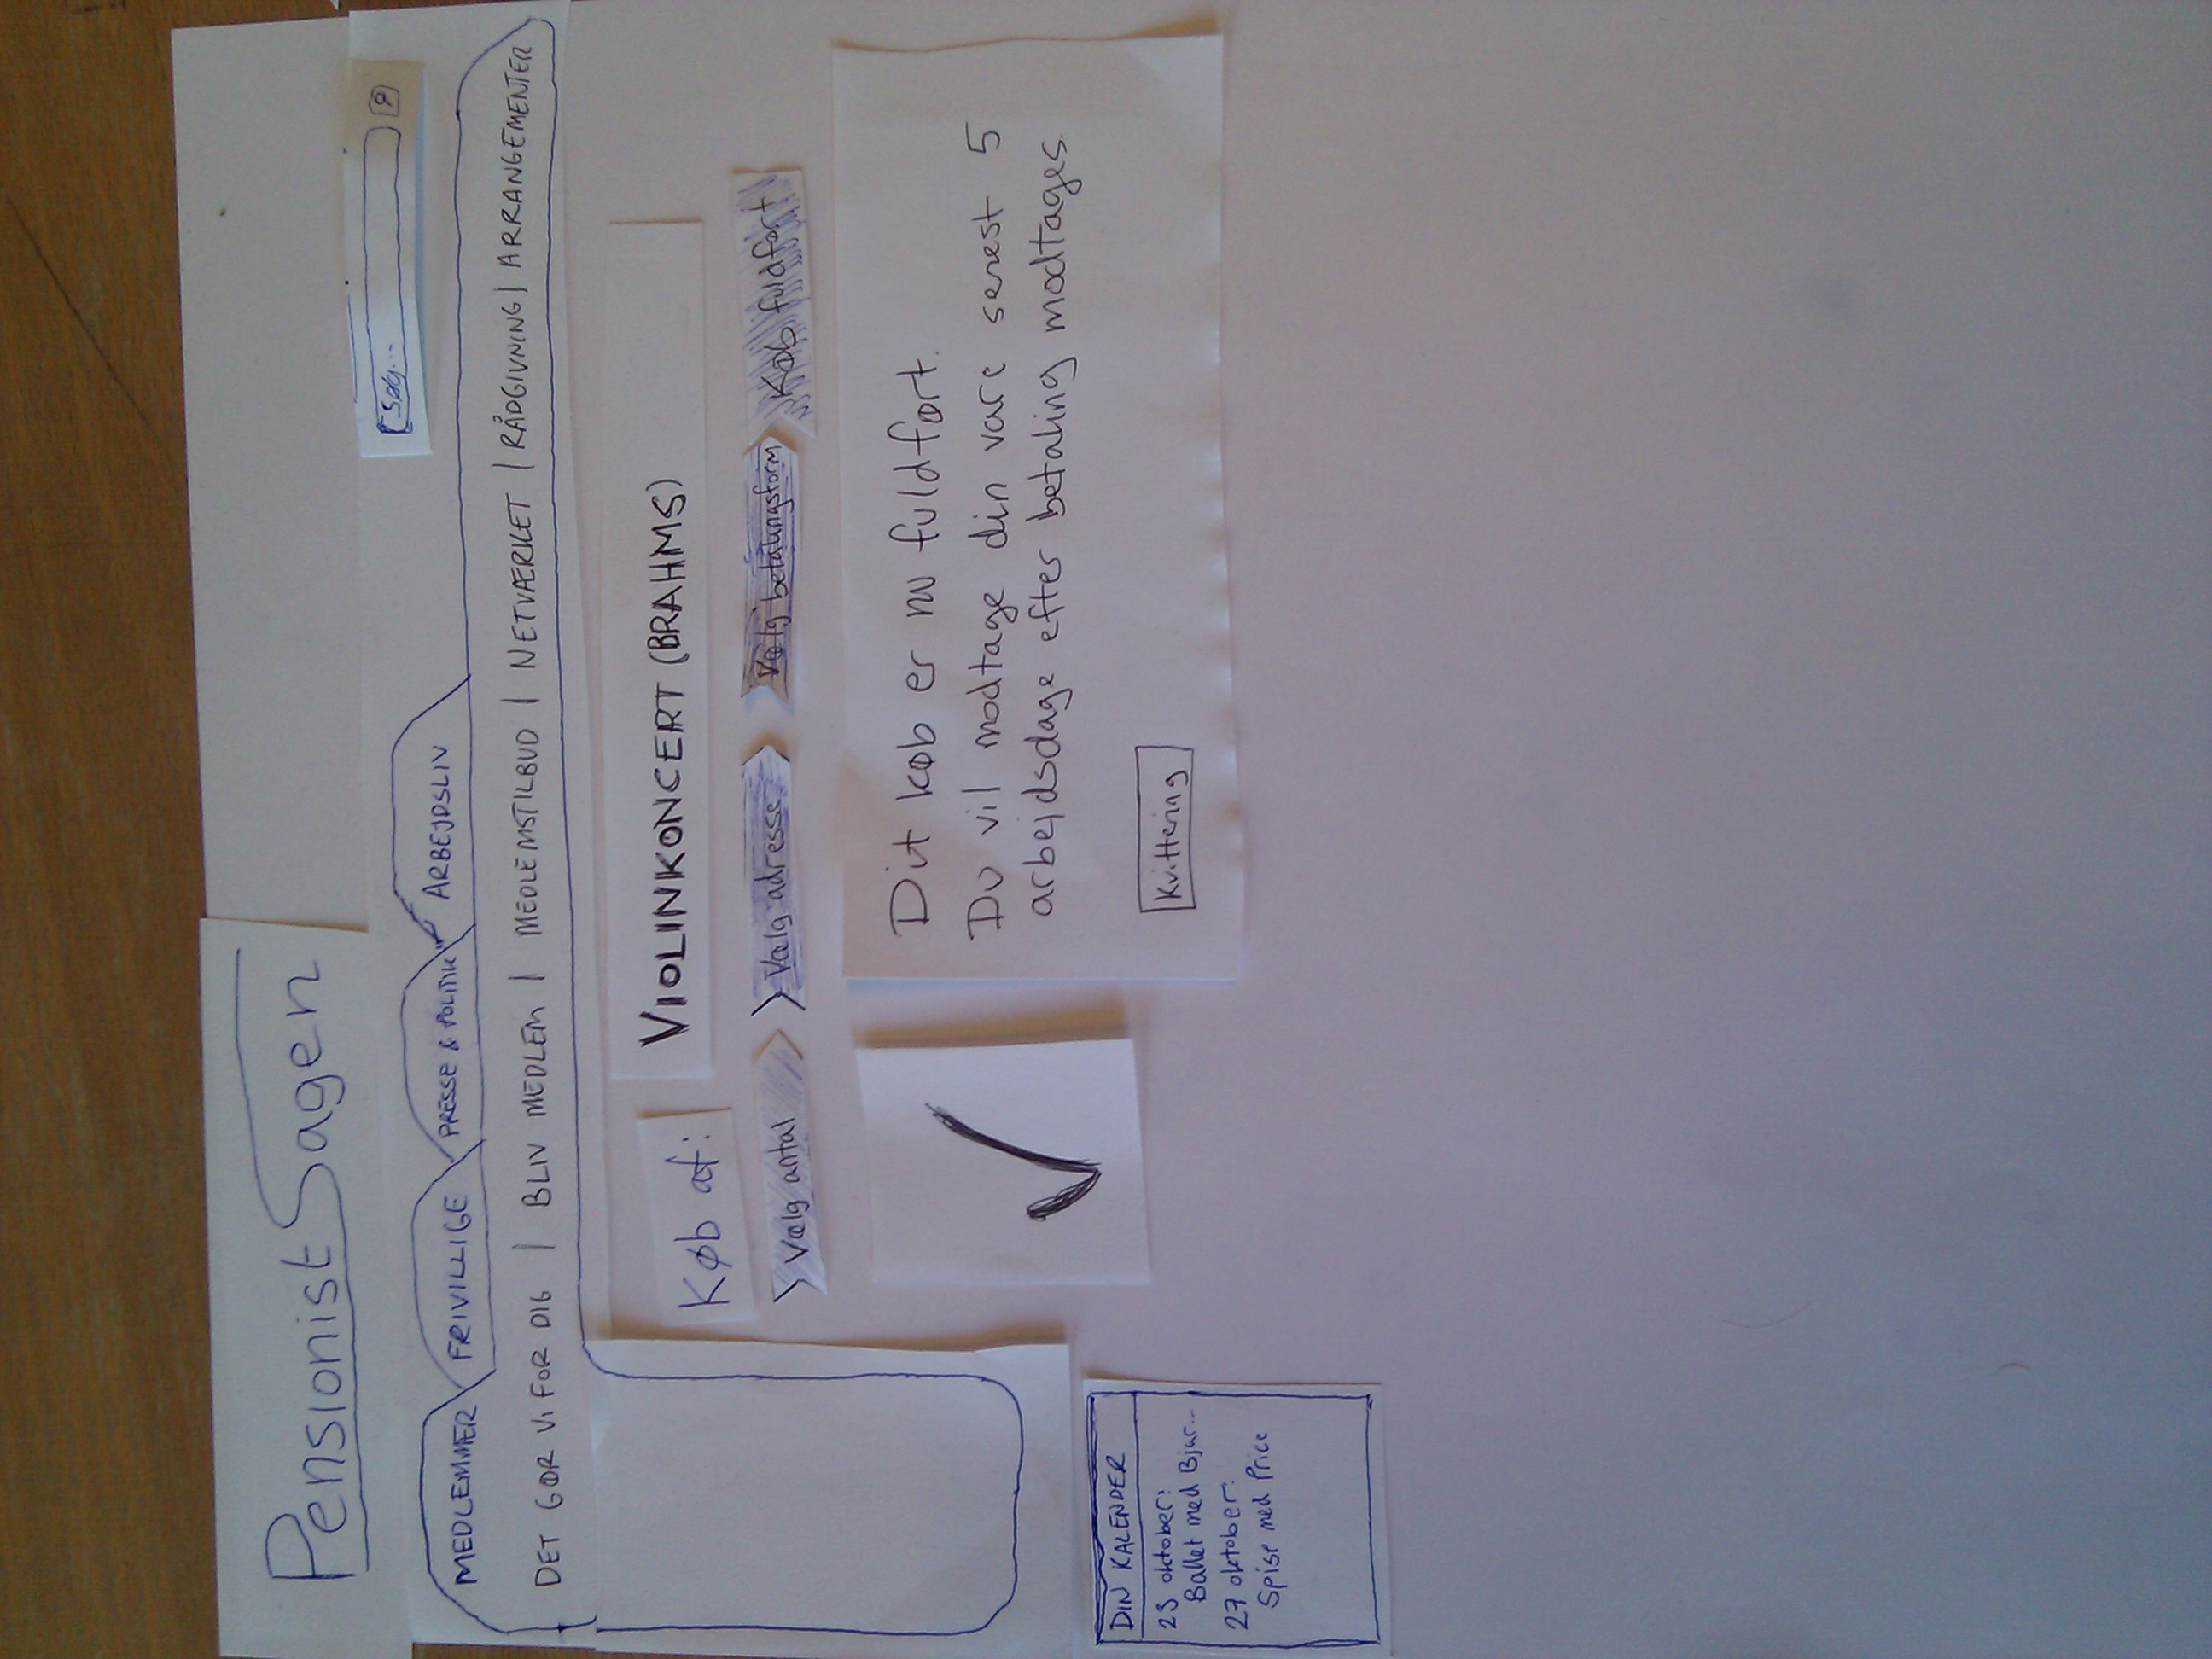 PensionistSagen
Søg...
MEDLEMMER FRIVILLIGE PRESSE & POLITIK ARBEJDSLIV
DET GØR VI FOR DIG | BLIV MEDLEM | MEDLEMSTILBUD | NETVÆRKET | RÅDGIVNING | ARRANGEMENTER
Køb af: VIOLINKONCERT (BRAHMS)
Vælg antal Vælg adresse Vælg betalingsform Køb fuldført
Dit køb er nu fuldført.
Du vil modtage din vare senest 5
arbejdsdage efter betaling modtages.
Kvittering
DIN KALENDER
23 oktober:
Ballet med Bjur...
27 oktober:
Spise med Price